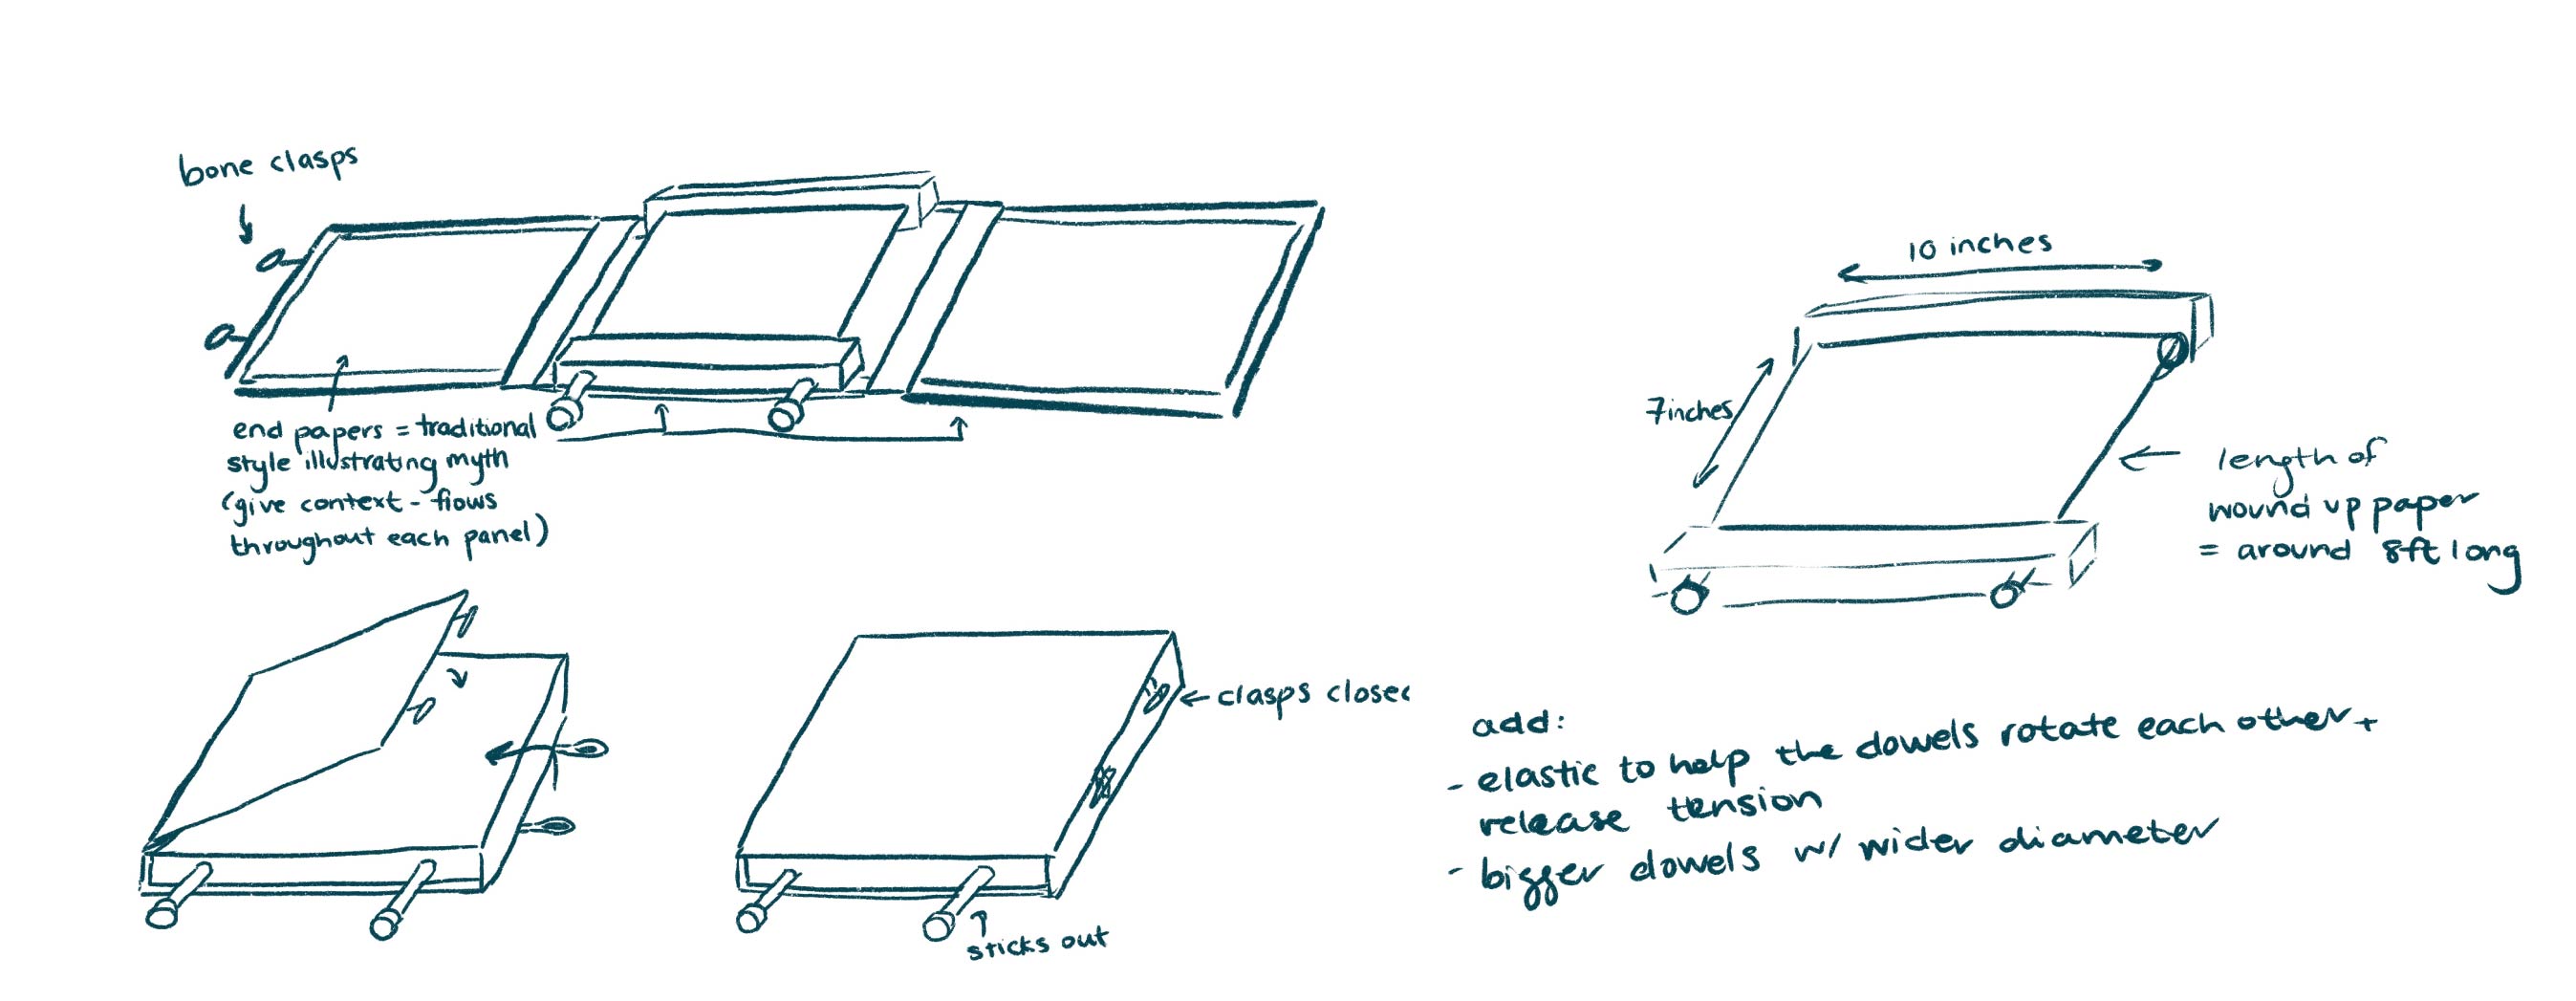 bone clasps
end papers = traditional
style illustrating myth
(give context - flows
throughout each panel)
10 inches
7inches
length of
wound up paper
= around 8ft long
clasps closed
sticks out
add:
- elastic to help the dowels rotate each other +
release tension
- bigger dowels w/ wider diameter